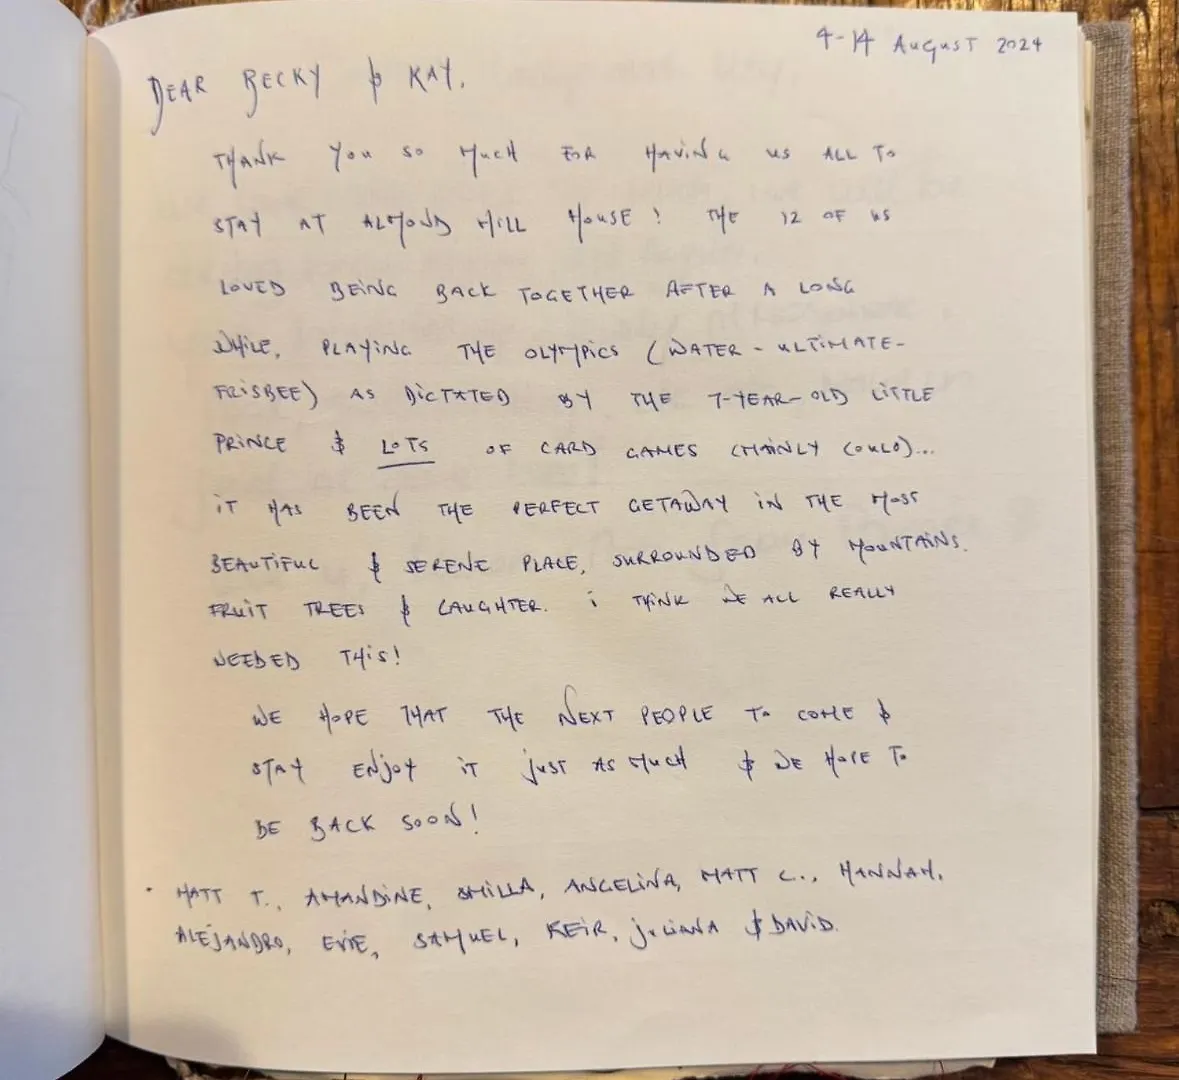 4-14 AUGUST 2024
DEAR BECKY & KAY,
THANK YOU SO MUCH FOR HAVING US ALL TO
STAY AT ALMOND HILL HOUSE! THE 12 OF US
LOVED BEING BACK TOGETHER AFTER A LONG
WHILE, PLAYING THE OLYMPICS (WATER-ULTIMATE-
FRISBEE) AS DICTATED BY THE 7-YEAR-OLD LITTLE
PRINCE & LOTS OF CARD GAMES (MAINLY
iT HAS BEEN THE PERFECT GETAWAY iN THE MOST
BEAUTIFUL & SERENE PLACE, SURROUNDED BY MOUNTAINS,
FRUIT TREES & LAUGHTER. i THINK WE ALL REALLY
NEEDED THiS!
WE HOPE THAT THE NEXT PEOPLE TO COME &
STAY ENJOY iT JUST AS MUCH & WE HOPE TO
BE BACK SOON!
MATT T., AMANDINE, SMILLA, ANGELINA, MATT C., HANNAH,
ALEJANDRO, EVIE, SAMUEL, KEIR, JULIANA & DAVID.